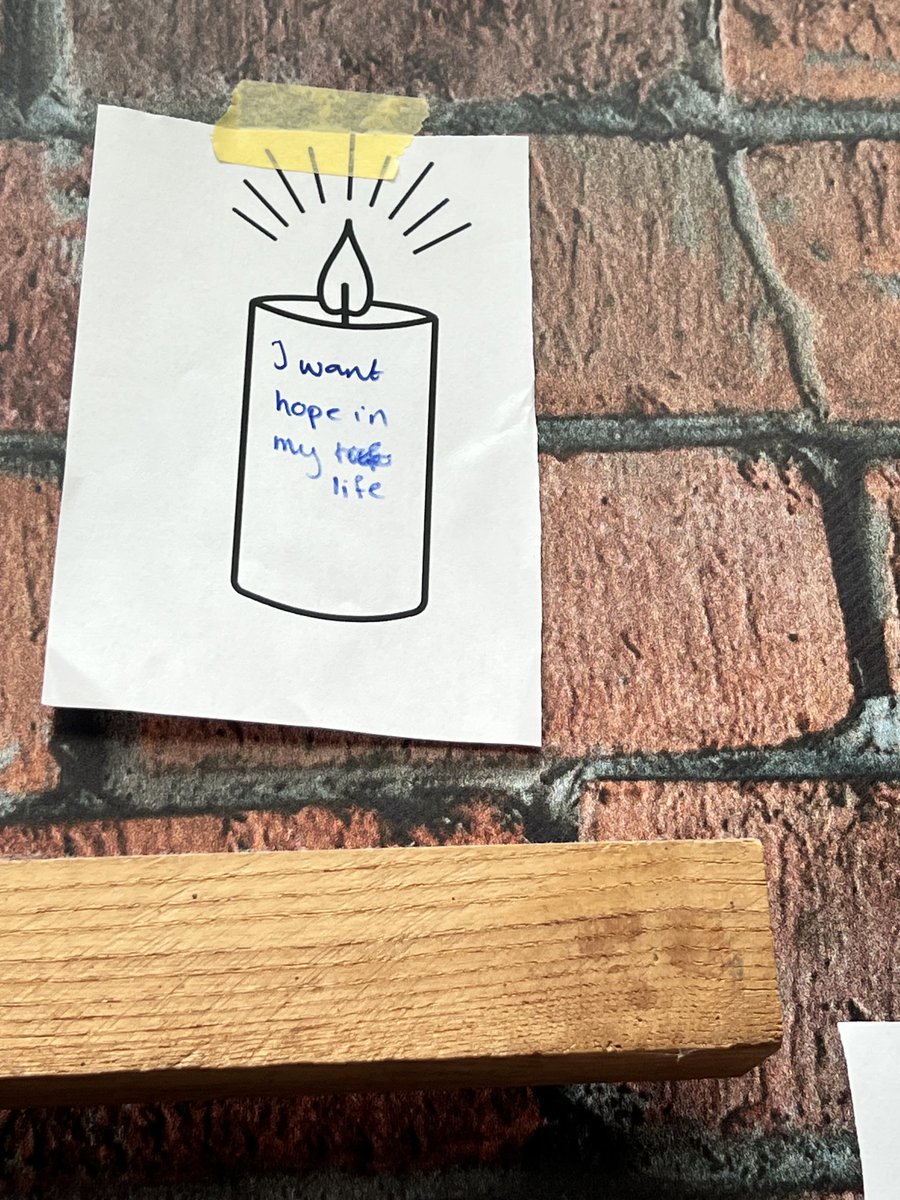 I want
hope in
my
life